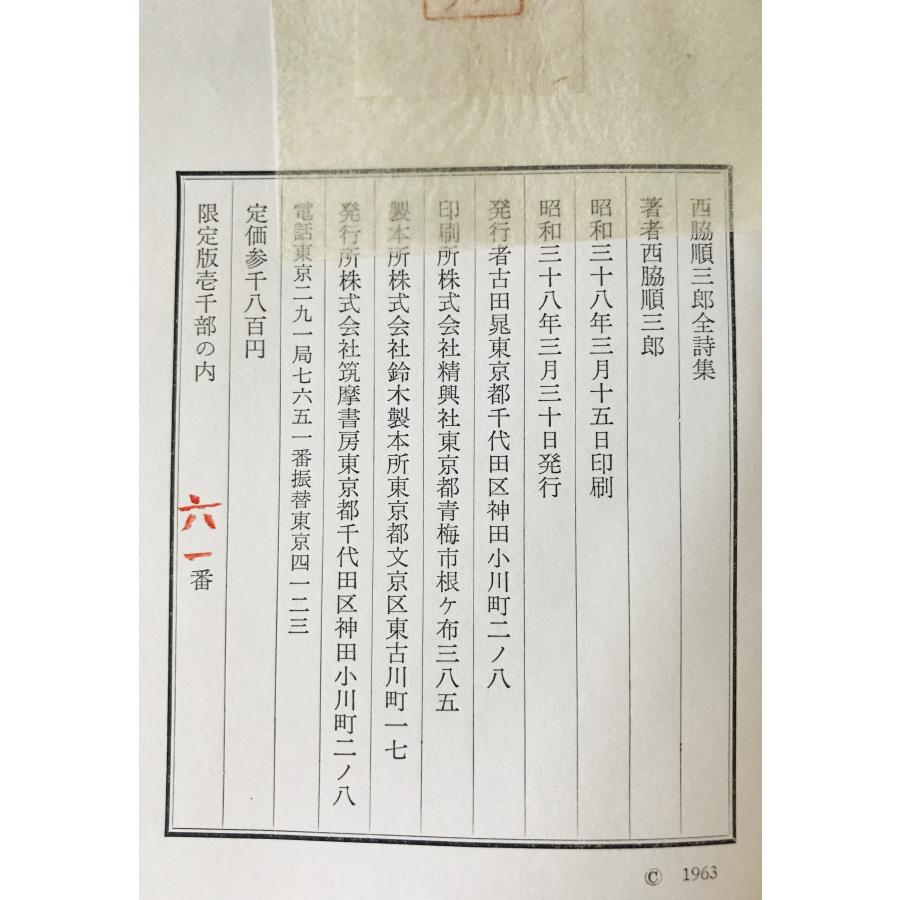 西脇順三郎全詩集
著者西脇順三郎
昭和三十八年三月十五日印刷
昭和三十八年三月三十日発行
発行者古田晁東京都千代田区神田小川町二ノ八
印刷所株式会社精興社東京都青梅市根ケ布三八五
製本所株式会社鈴木製本所東京都文京区東古川町一七
発行所株式会社筑摩書房東京都千代田区神田小川町二ノ八
電話東京二九一局七六五一番振替東京四一二三
定価参千八百円
限定版壱千部の内 六一番
© 1963